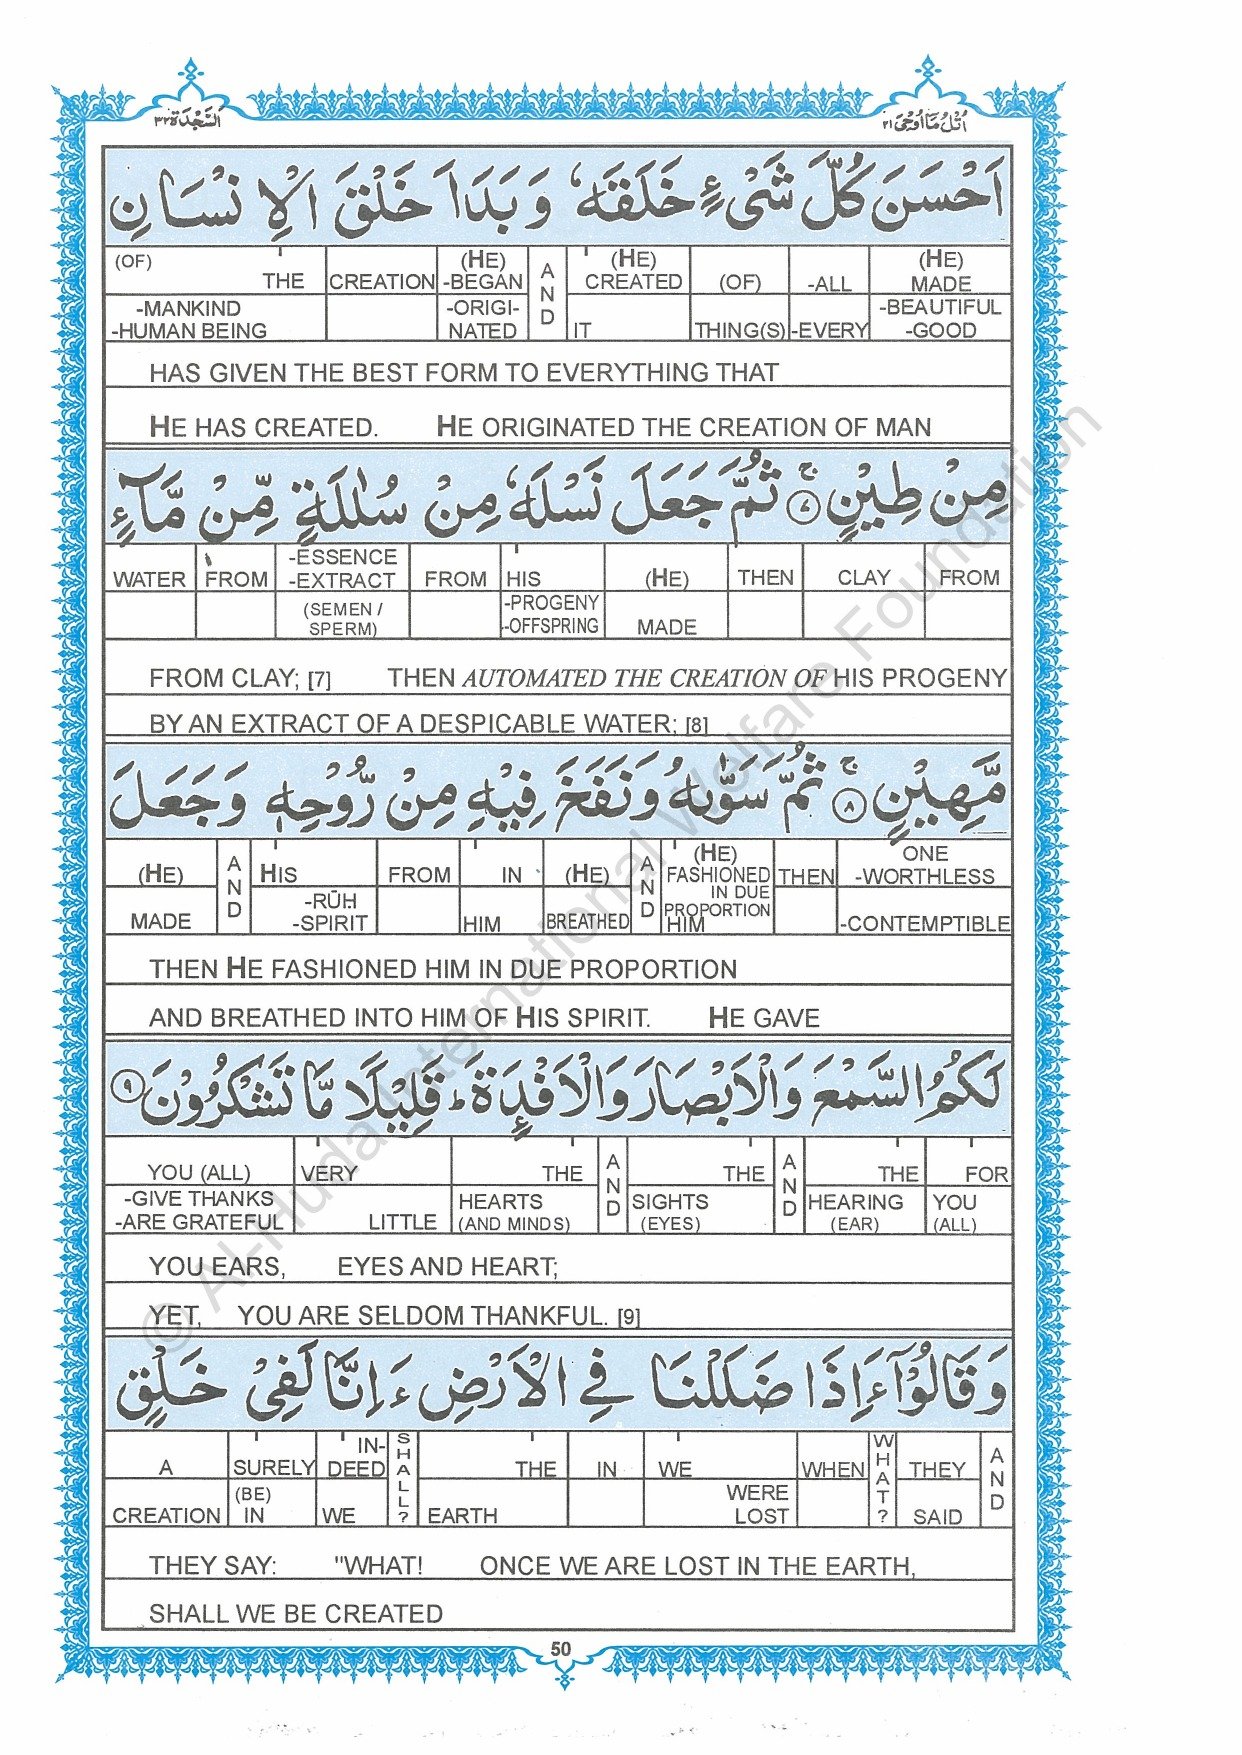 السَّجْدَة ٣٢
اُتْلُ مَا اُوْحِیَ ٢١
اَحْسَنَ كُلَّ شَیْءٍ خَلَقَهٗ وَ بَدَاَ خَلْقَ الْاِنْسَانِ
(OF) THE CREATION (HE) -BEGAN AND (HE) CREATED (OF) -ALL (HE) MADE
-MANKIND -HUMAN BEING -ORIGI-NATED IT THING(S) -EVERY -BEAUTIFUL -GOOD
HAS GIVEN THE BEST FORM TO EVERYTHING THAT
HE HAS CREATED. HE ORIGINATED THE CREATION OF MAN
مِنْ طِیْنٍ ۚ ﴿٧﴾ ثُمَّ جَعَلَ نَسْلَهٗ مِنْ سُلٰلَةٍ مِّنْ مَّآءٍ
WATER FROM -ESSENCE -EXTRACT FROM HIS (HE) THEN CLAY FROM
(SEMEN / SPERM) -PROGENY -OFFSPRING MADE
FROM CLAY; [7] THEN AUTOMATED THE CREATION OF HIS PROGENY
BY AN EXTRACT OF A DESPICABLE WATER; [8]
مَّهِیْنٍ ۚ ﴿٨﴾ ثُمَّ سَوّٰىهُ وَ نَفَخَ فِیْهِ مِنْ رُّوْحِهٖ وَ جَعَلَ
(HE) AND HIS FROM IN (HE) AND (HE) FASHIONED THEN ONE -WORTHLESS
MADE -RŪH -SPIRIT HIM BREATHED IN DUE PROPORTION HIM -CONTEMPTIBLE
THEN HE FASHIONED HIM IN DUE PROPORTION
AND BREATHED INTO HIM OF HIS SPIRIT. HE GAVE
لَكُمُ السَّمْعَ وَ الْاَبْصَارَ وَ الْاَفْـِٕدَةَ ؕ قَلِیْلًا مَّا تَشْكُرُوْنَ ﴿٩﴾
YOU (ALL) VERY THE AND THE AND THE FOR
-GIVE THANKS -ARE GRATEFUL LITTLE HEARTS (AND MINDS) SIGHTS (EYES) HEARING (EAR) YOU (ALL)
YOU EARS, EYES AND HEART;
YET, YOU ARE SELDOM THANKFUL. [9]
وَ قَالُوْۤا ءَ اِذَا ضَلَلْنَا فِی الْاَرْضِ ءَ اِنَّا لَفِیْ خَلْقٍ
A SURELY IN-DEED SHALL? THE IN WE WHEN WHAT? THEY AND
CREATION (BE) IN WE EARTH WERE LOST SAID
THEY SAY: "WHAT! ONCE WE ARE LOST IN THE EARTH,
SHALL WE BE CREATED
50
© Al-Huda International Welfare Foundation